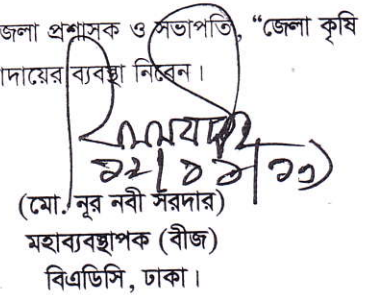 জেলা প্রশাসক ও সভাপতি, “জেলা কৃষি
দায়ের ব্যবস্থা নিবেন।
(মো. নূর নবী সরদার)
মহাব্যবস্থাপক (বীজ)
বিএডিসি, ঢাকা।